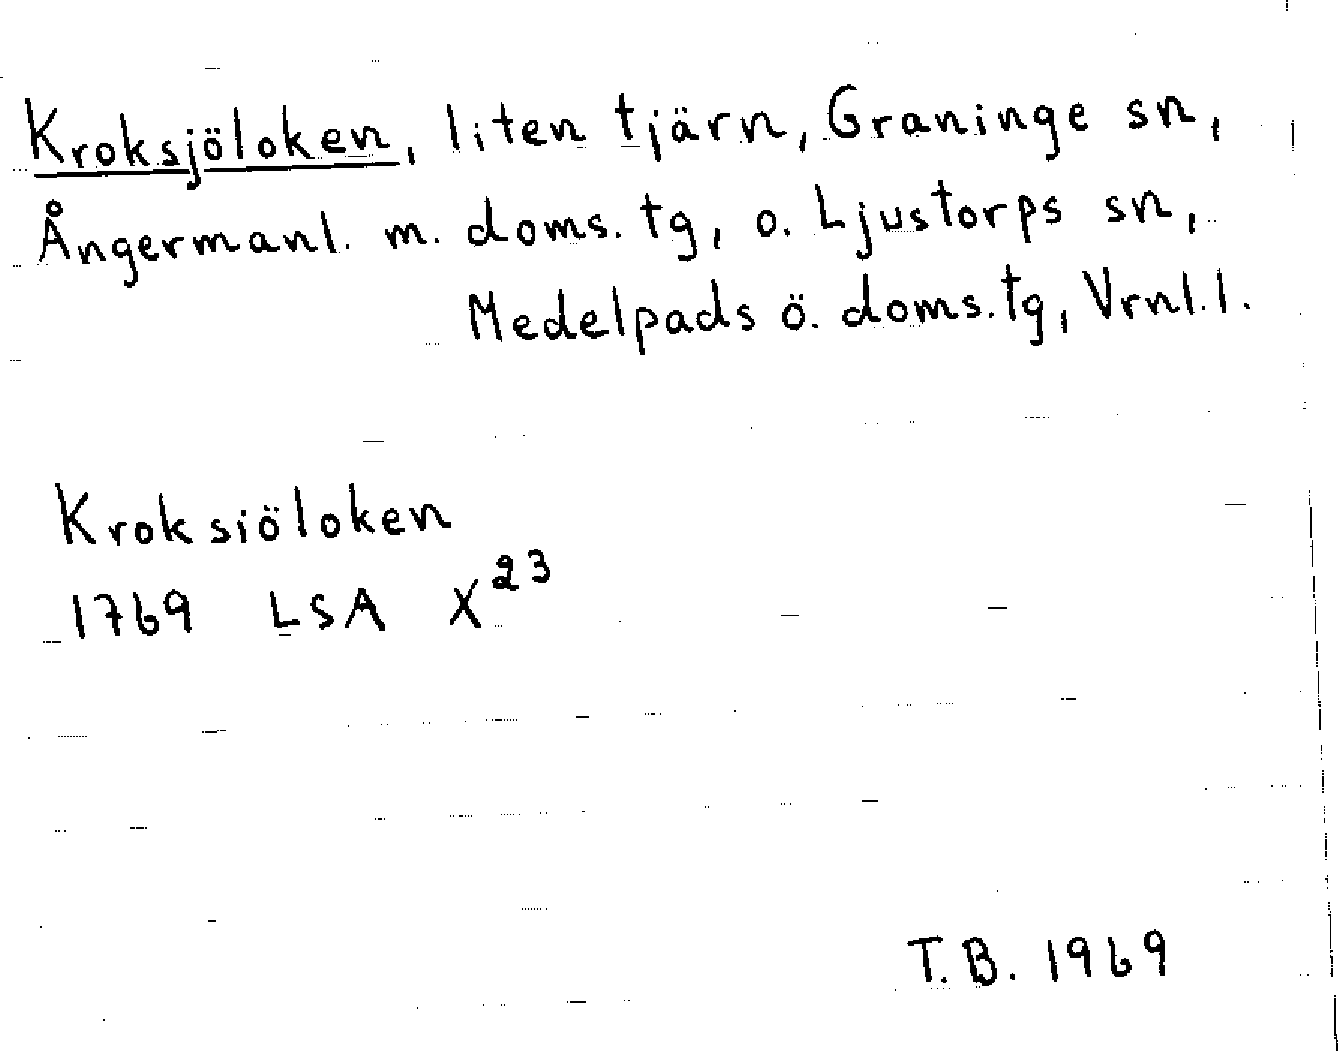 Kroksjöloken, liten tjärn, Graninge sn,
Ångermanl. m. doms. tg, o. Ljustorps sn,
Medelpads ö. doms. tg, Vrnl. l.
Kroksiöloken
1769 LSA X²³
T.B. 1969